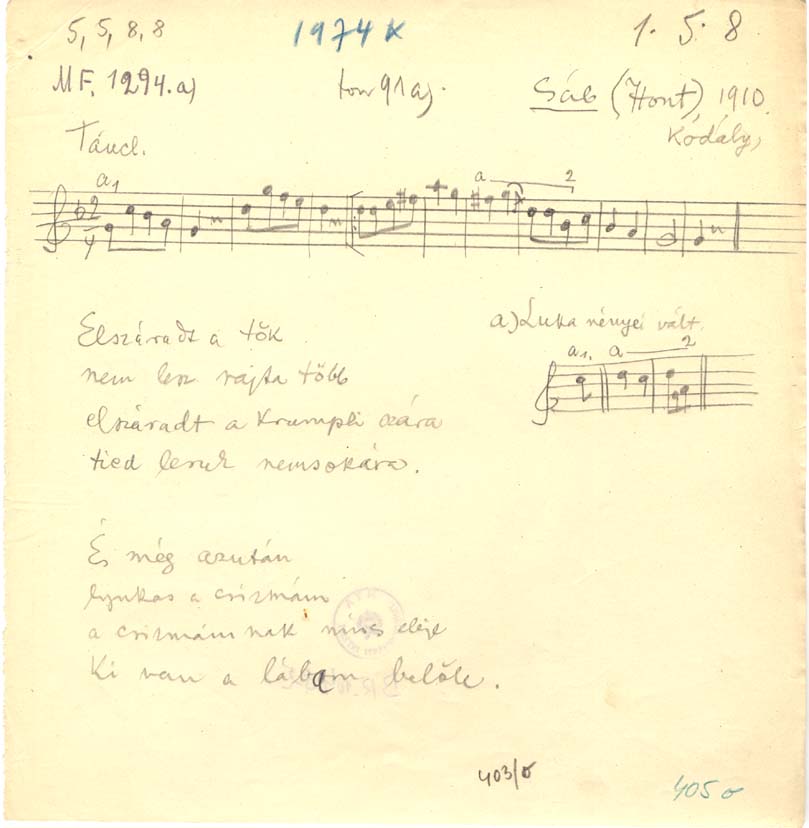 5, 5, 8, 8
1974 K
1. 5. 8
MF. 1294. a)
ton 91 a).
Sáb (Hont) 1910.
Kodály,
Táncl.
a1
a 2
2
4
Elszáradt a tők
nem lesz rajta több
elszáradt a krumpli szára
tied leszek nemsokára.
a) Luka nényei vált.
a1. a 2
És még azután
lyukas a csizmám
a csizmámnak nincs eleje
Ki van a lábam belőle.
403/σ
405 σ